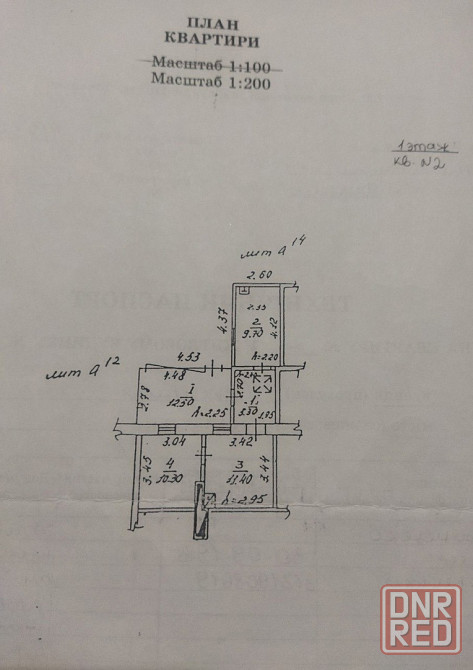 ПЛАН
КВАРТИРИ
Масштаб 1:100
Масштаб 1:200
1 этаж
кв. N2
лит А 14
2.60
2.35
4.37
2
9.70
4.12
h=2.20
лит а 12
4.53
4.48
2.78
I
12.50
h=2.25
1.75
3.04
3.42
3.45
4
10.30
3
11.40
3.44
h=2.95
DNR
RED